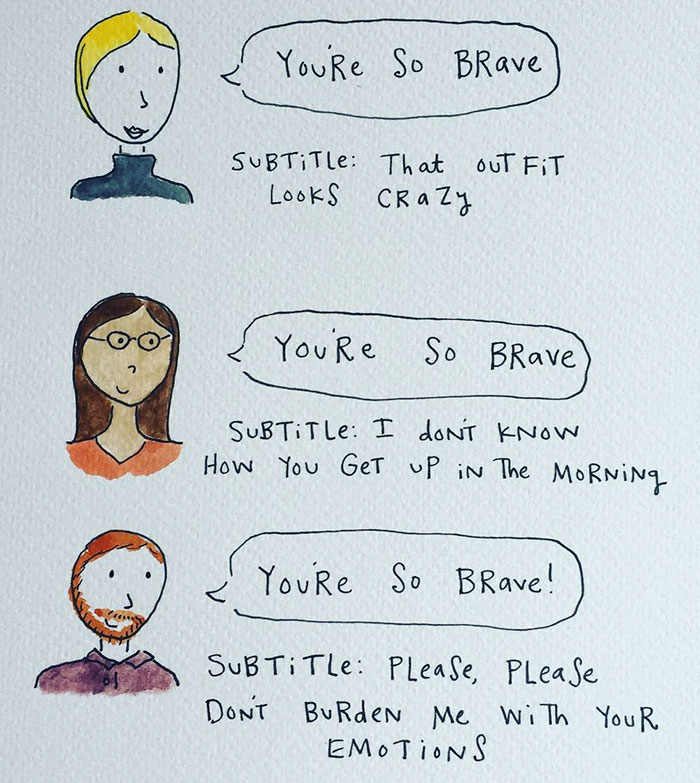 You're So BRave
SuBTiTLe: That ouTFiT
LooKS CRaZy
You'Re So BRave
SuBTiTLe: I doN'T KNow
How You GeT uP iN The MoRNiNg
You'Re So BRave!
SuBTiTLe: PLeaSe, PLeaSe
DoN'T BuRdeN Me WiTh YouR
EMoTioNS